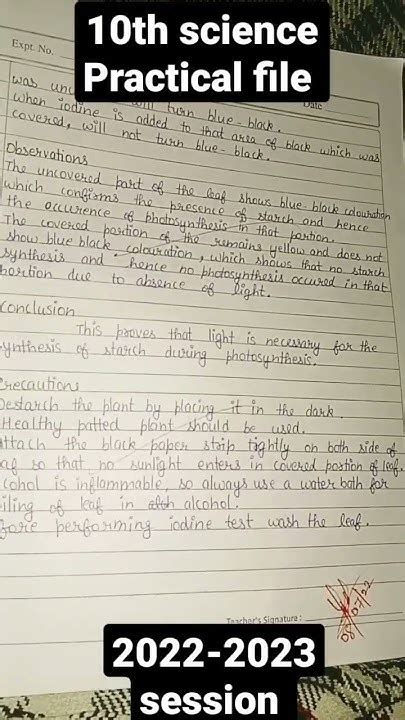 10th science
Practical file
Expt. No.
Date
was unc will turn blue-black.
when iodine is added to that area of black which was
covered, will not turn blue-black.
Observations
The uncovered part of the leaf shows blue-black colouration
which confirms the presence of starch and hence
the occurence of photosynthesis in that portion.
The covered portion of the remains yellow and does not
show blue black colouration, which shows that no starch
synthesis and hence no photosynthesis occured in that
portion due to absence of light.
Conclusion
This proves that light is necessary for the
synthesis of starch during photosynthesis.
Precautions
Destarch the plant by placing it in the dark.
Healthy potted plant should be used.
attach the black paper strip tightly on both side of
eaf so that no sunlight enters in covered portion of leaf.
cohol is inflammable, so always use a water bath for
iling of leaf in alcohol.
fore performing iodine test wash the leaf.
Teacher's Signature :
08/07/22
2022-2023
session